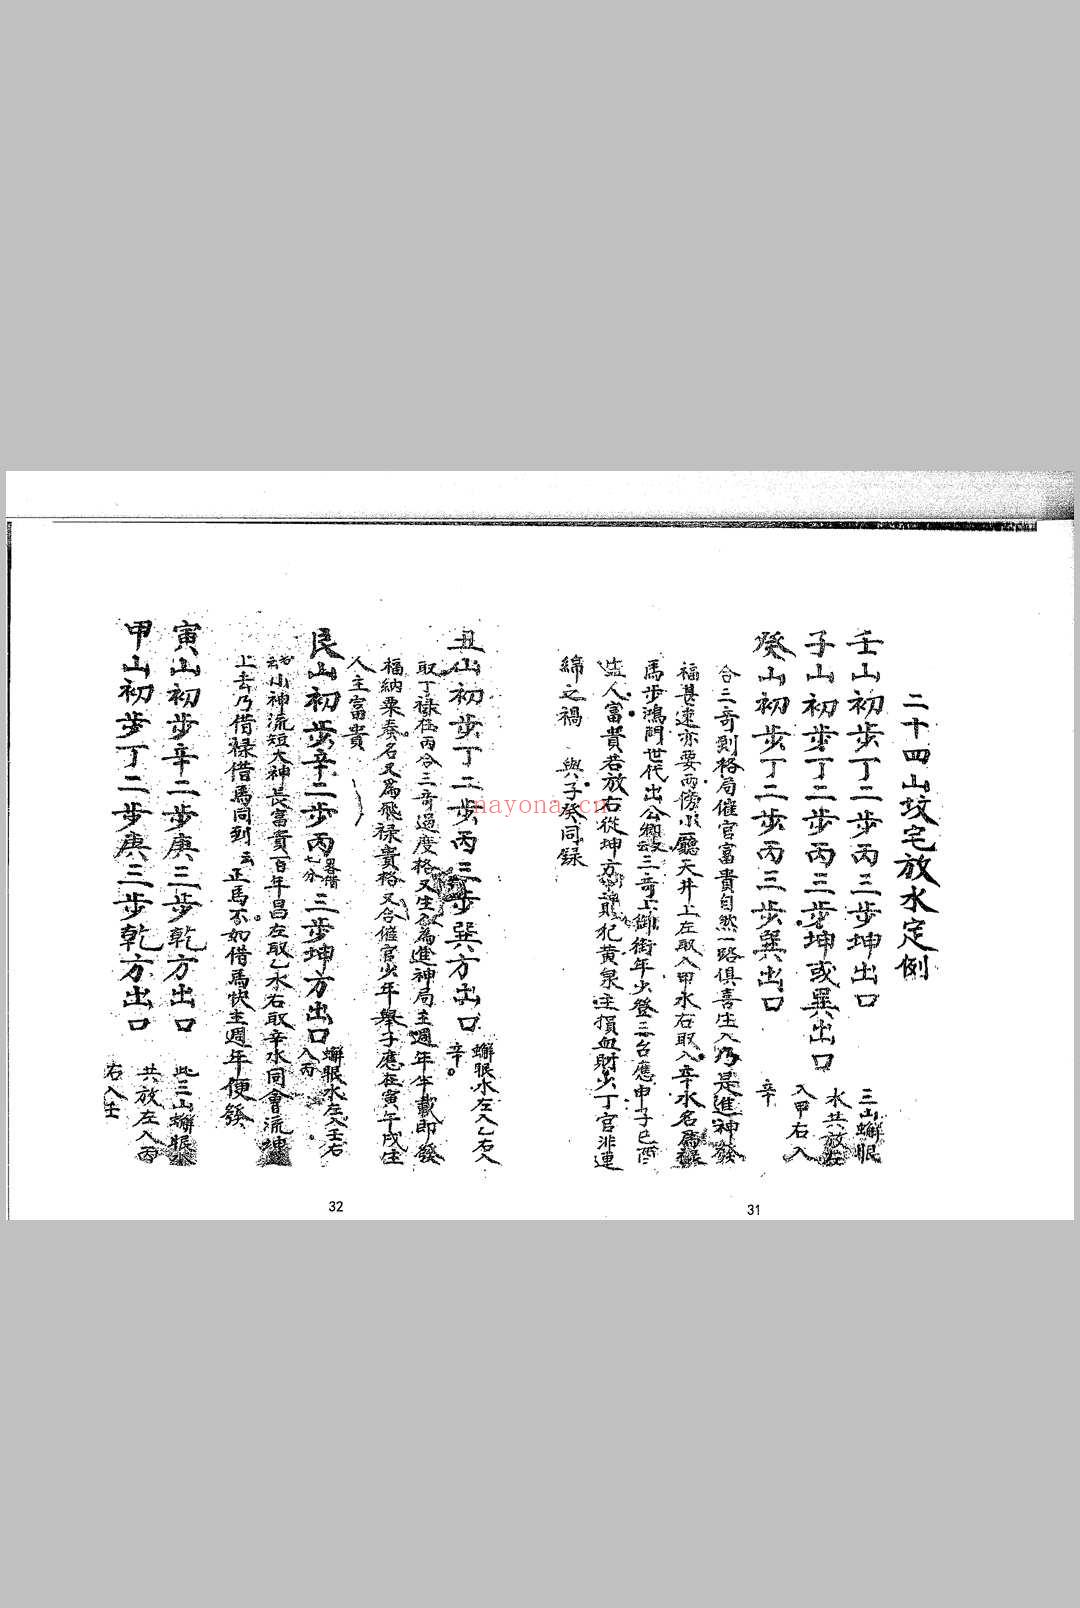 二十四山坟宅放水定例
壬山初步丁二步丙三步坤出口
三山蠏眼
水共放左
入甲右入
辛
子山初步丁二步丙三步坤或巽出口
癸山初步丁二步丙三步巽出口
合三奇到格局催官富貴自然一路俱喜生入乃是進神發
福甚速亦要兩傍小廳天井上左取入甲水右取入辛水名為禄
馬步鴻門世代出公卿三奇上御街年少登三台應申子巳酉
人富貴若放右從坤方犯黄泉主損血財少丁官非連
綿之禍 與子癸同録
31
丑山初步丁二步丙三步巽方出口
蠏眼水左入乙右入
辛。
取丁禄在丙合三奇過度格又生為進神局主週年半載即發
福納粟奏名又為飛禄貴格又合催官少年舉子應在寅午戌生
人主富貴
艮山初步辛二步丙三步坤方出口
蠏眼水左入壬右
入丙
小神流短大神長富貴百年昌左取乙水右取辛水同會流坤
上去乃借禄借馬同到云正馬不如借馬快主週年便發
寅山初步辛二步庚三步乾方出口
此三山蠏眼水
共放左入丙
右入壬
甲山初步丁二步庚三步乾方出口
32
nayona.cn